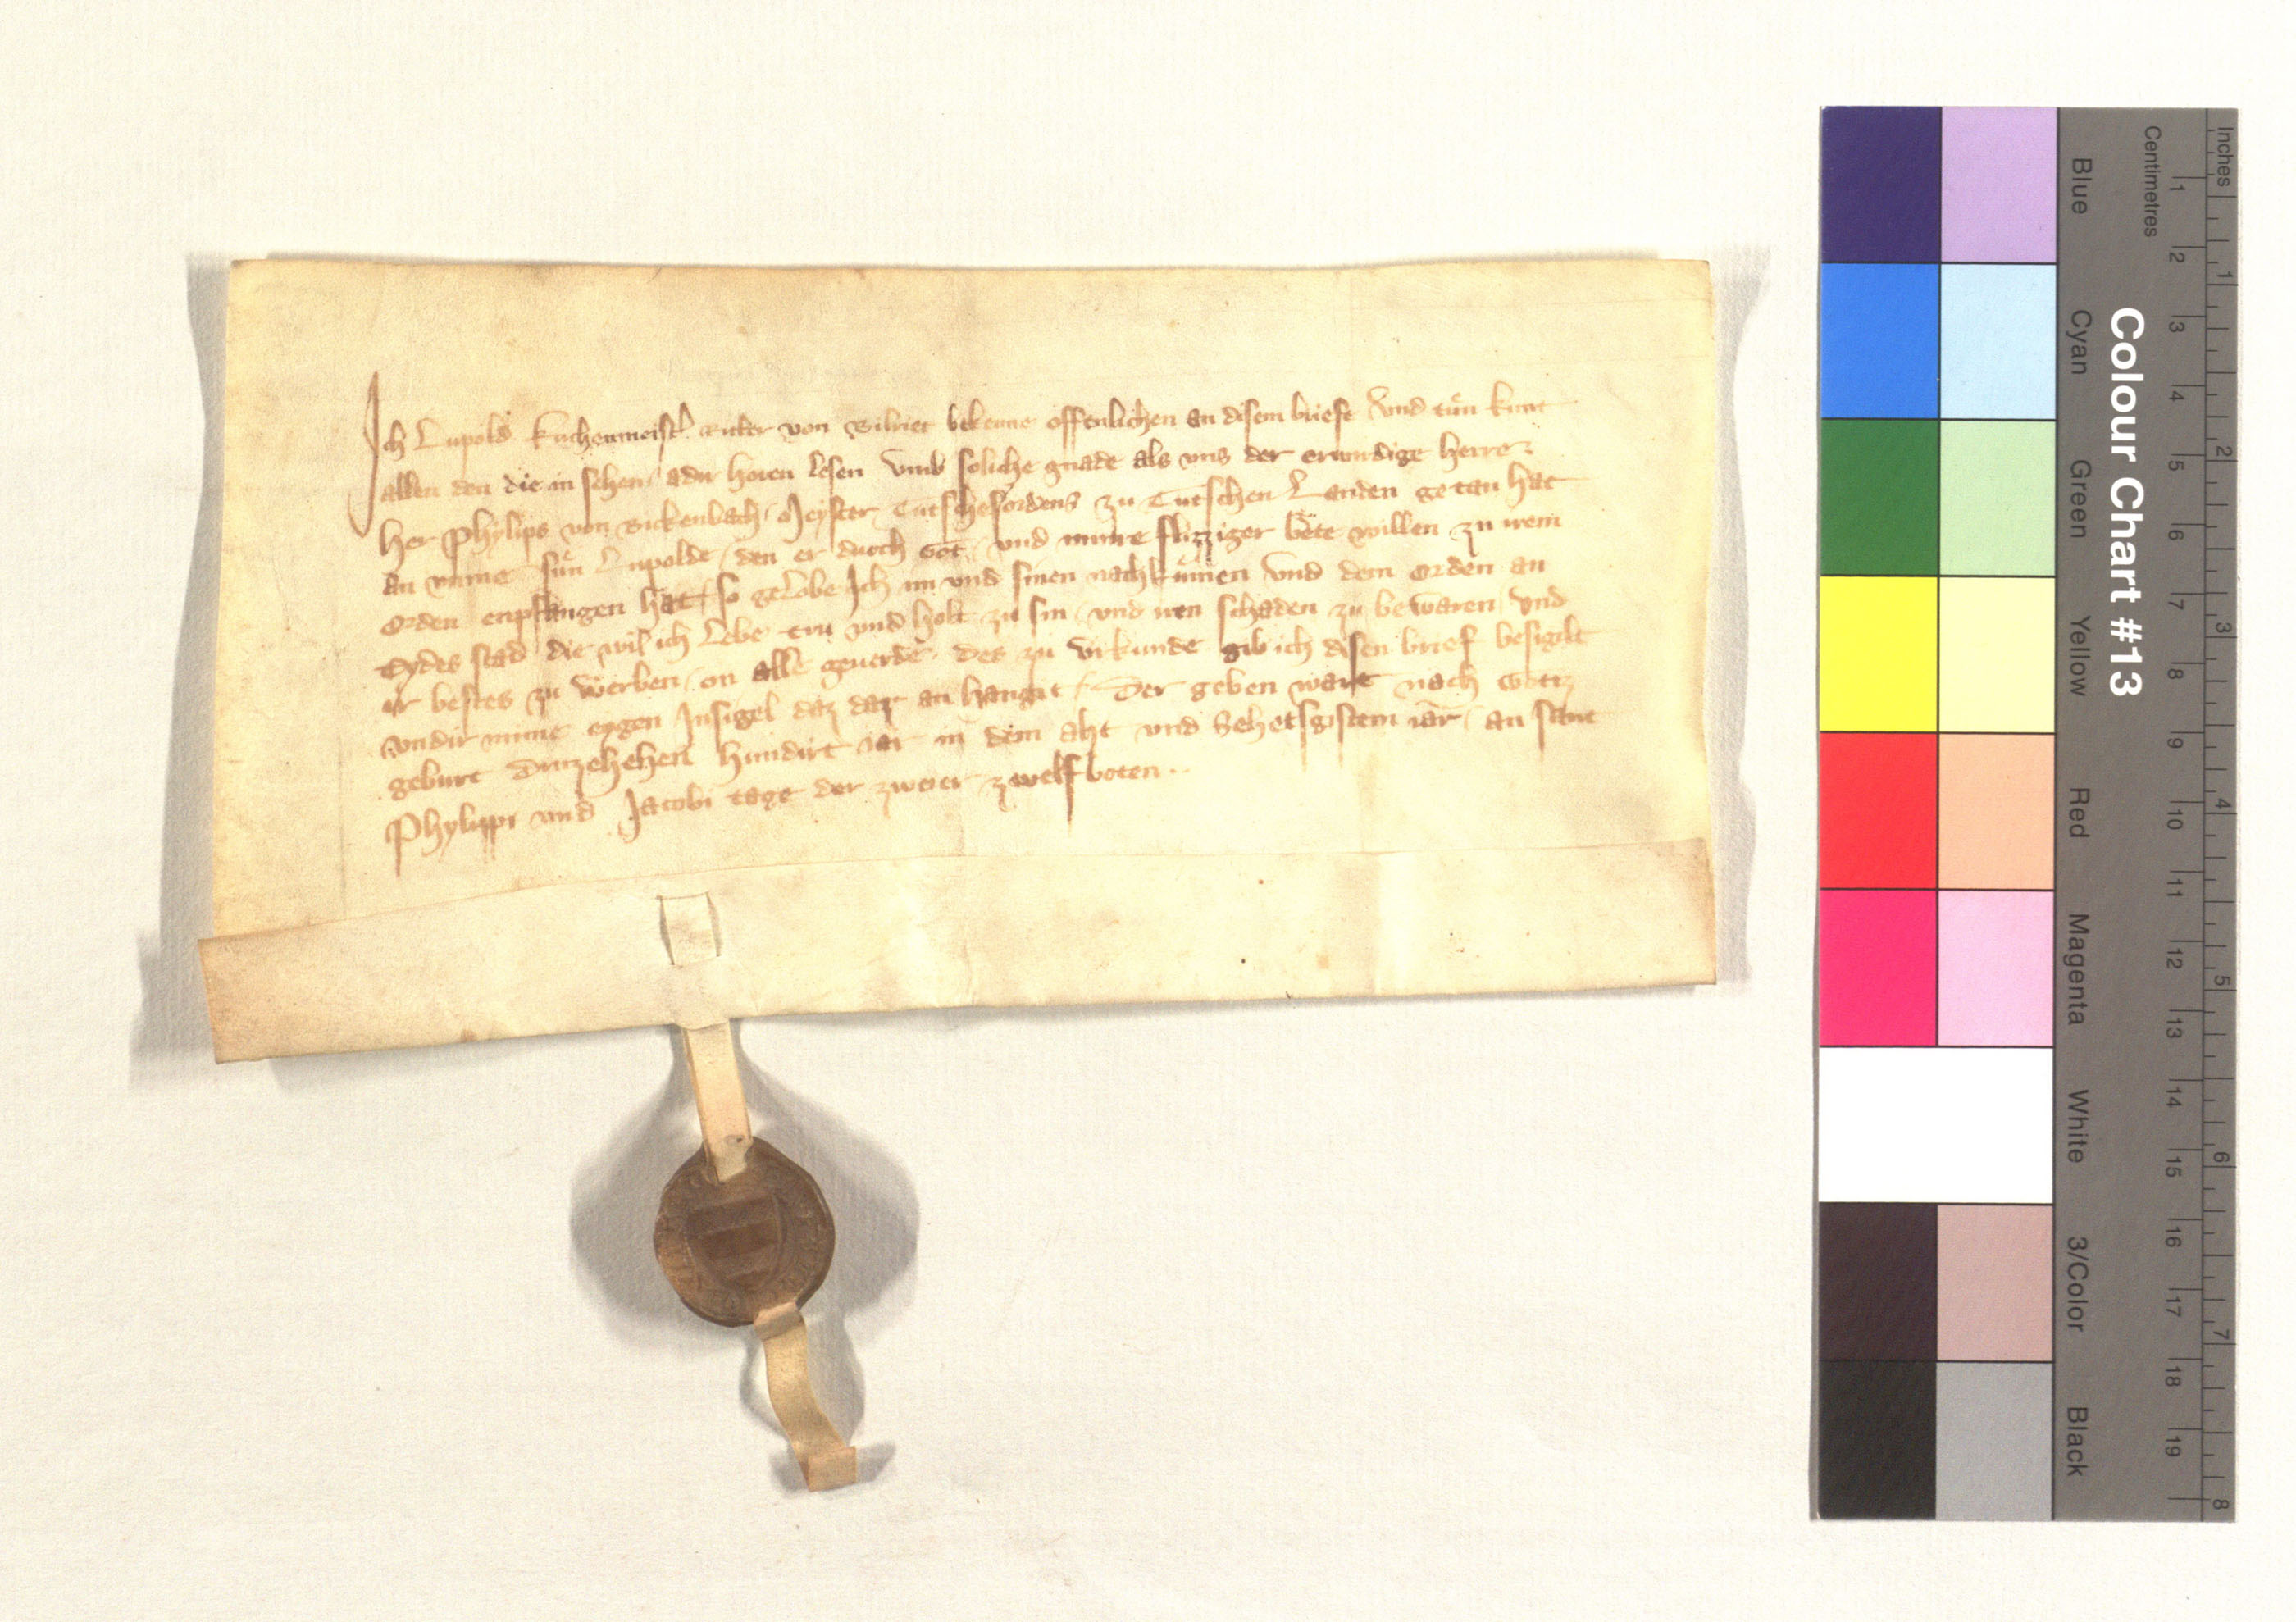 Ich Lupold Kuchenmeist᾽ Ritter von Bilriet bekenne offenlichen an disem briefe vnd tůn kunt
allen den die in sehen adir horen lesen vmb soliche gnade als vns der erwirdige herre
her Phylips von Bickenbach Meyster Tutschesordens zu Tutschen Landen getan hat
an mime sůn Lupolde den er durch Got vnd mimre flizziger bete willen zu irem
Orden enpfangen hat so gelobe Ich im vnd sinen nachkůmen vnd dem Orden an
Eydes stad die wil ich Lebe tru vnd holt zu sin vnd iren schaden zu bewaren vnd
ir bestes zu werben on alle geuerde des zu vrkunde gib ich disen brief besigelt
vndir mime eygen Insigel daz dar an hanget Der geben wart nach Gotz
geburt druzehehen hundirt iar in dem aht vnd Sehetsgistem iar an sant
Phylippi vnd Jacobi tage der zweier zwelfboten
Colour Chart #13
Blue
Cyan
Green
Yellow
Red
Magenta
White
3/Color
Black
Centimetres
1 2 3 4 5 6 7 8 9 10 11 12 13 14 15 16 17 18 19
Inches
1 2 3 4 5 6 7 8